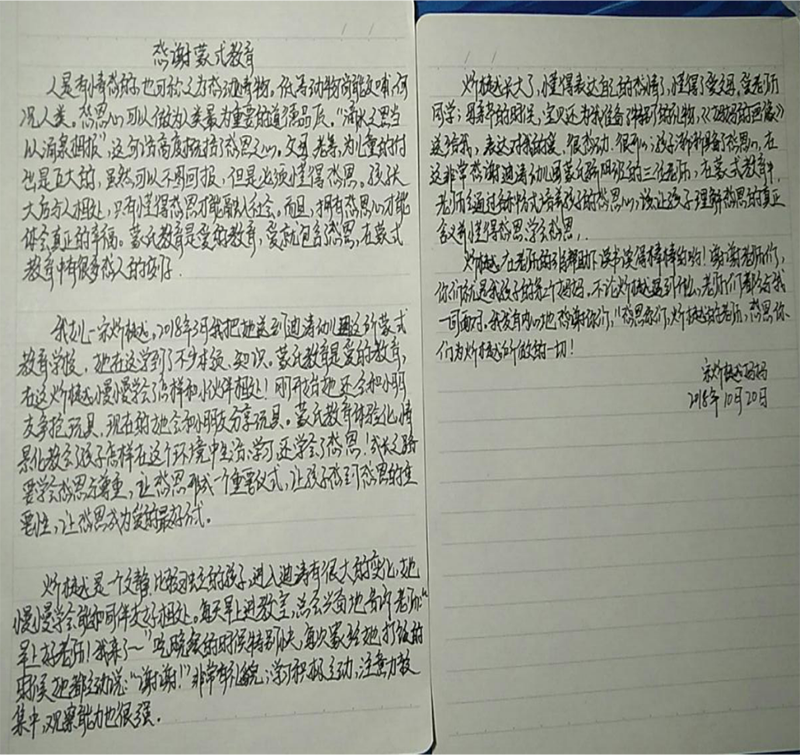 感谢蒙式教育
人是有情感的也可称之为感动动物。低等动物尚能反哺,何
况人类。感恩心可以做为人类最为重要的道德品质。"滴水之恩当
以涌泉相报",这句话高度概括了感恩之心。父母、老师,为儿童的付出
也是巨大的,虽然可以不图回报,但是必须懂得感恩。孩子长
大后与人相处,只有懂得感恩才能融入社会。而且,拥有感恩心才能
体会真正的幸福。蒙氏教育是爱的教育,爱就包含感恩,在蒙式
教育中有很多感人的
我女儿宋炉樾,2018年3月我把她送到迪涛幼儿园这所蒙式
教育学校,她在这学到了不少本领、知识。蒙氏教育是爱的教育,
在这炉樾慢慢学会了怎样和小伙伴相处!刚开始她还会和小朋
友争抢玩具,现在的她会和小朋友分享玩具。蒙氏教育体验化、情
景化教会了孩子怎样在这个环境中生活、学习,还学会了感恩!成长之路
要学会感恩与尊重,让感恩形成一个重要仪式,让孩子感到感恩的重
要性,让感恩成为爱的最好方式。
炉樾是一个文静、比较独立的孩子,进入迪涛有很大的变化,她
慢慢学会能和同伴友好相处。每天早上进教室,总会兴奋地告诉老师"
早上好老师!我来了~"吃晚餐的时候特别快,每次蒙给她打饭的
时候她都主动说:"谢谢!"非常有礼貌;学习积极主动,注意力较
集中,观察能力也很强。
炉樾长大了,懂得表达自己的感情了,懂得了爱父母、爱老师、
同学;母亲节的时候,宝贝还为我准备了特别的礼物,《妈妈的画像》
送给我,表达对我的爱。很感动、很开心;孩子渐渐具备了感恩心,在
这非常感谢迪涛幼儿园蒙氏班的三位老师,在蒙式教育中,
老师们通过各种方式培养孩子的感恩心,该让孩子理解感恩的真正
含义并懂得感恩、学会感恩,
炉樾在老师的帮助下读书读得棒棒的哟!谢谢老师们,
你们就是我孩子的第二个妈妈,不论炉樾遇到什么,老师们都会与我
一同面对。我发自内心地感谢你们,"感恩你们,炉樾的老师,感恩你
们为炉樾所做的一切!
宋炉樾妈妈
2018年10月20日